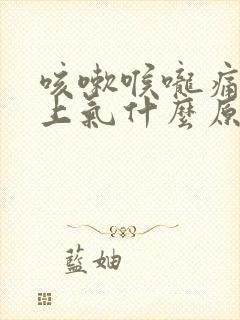 咳嗽喉嚨痛
上氣什麼原
藍妯